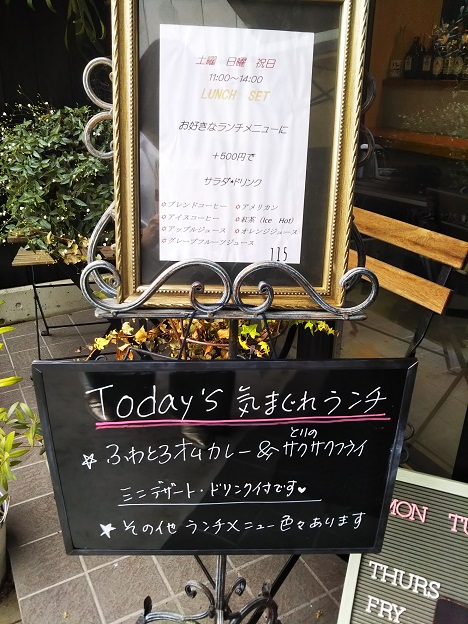 土曜 日曜 祝日
11:00～14:00
LUNCH SET
お好きなランチメニューに
+500円で
サラダ・ドリンク
ブレンドコーヒー アメリカン
アイスコーヒー 紅茶 (Ice Hot)
アップルジュース オレンジジュース
グレープフルーツジュース
115
Today's 気まぐれランチ
とりの
☆ふわとろオムカレー&サクサクフライ
ミニデザート・ドリンク付です♥
★その他ランチメニュー色々あります
MON TU
THURS
FRY